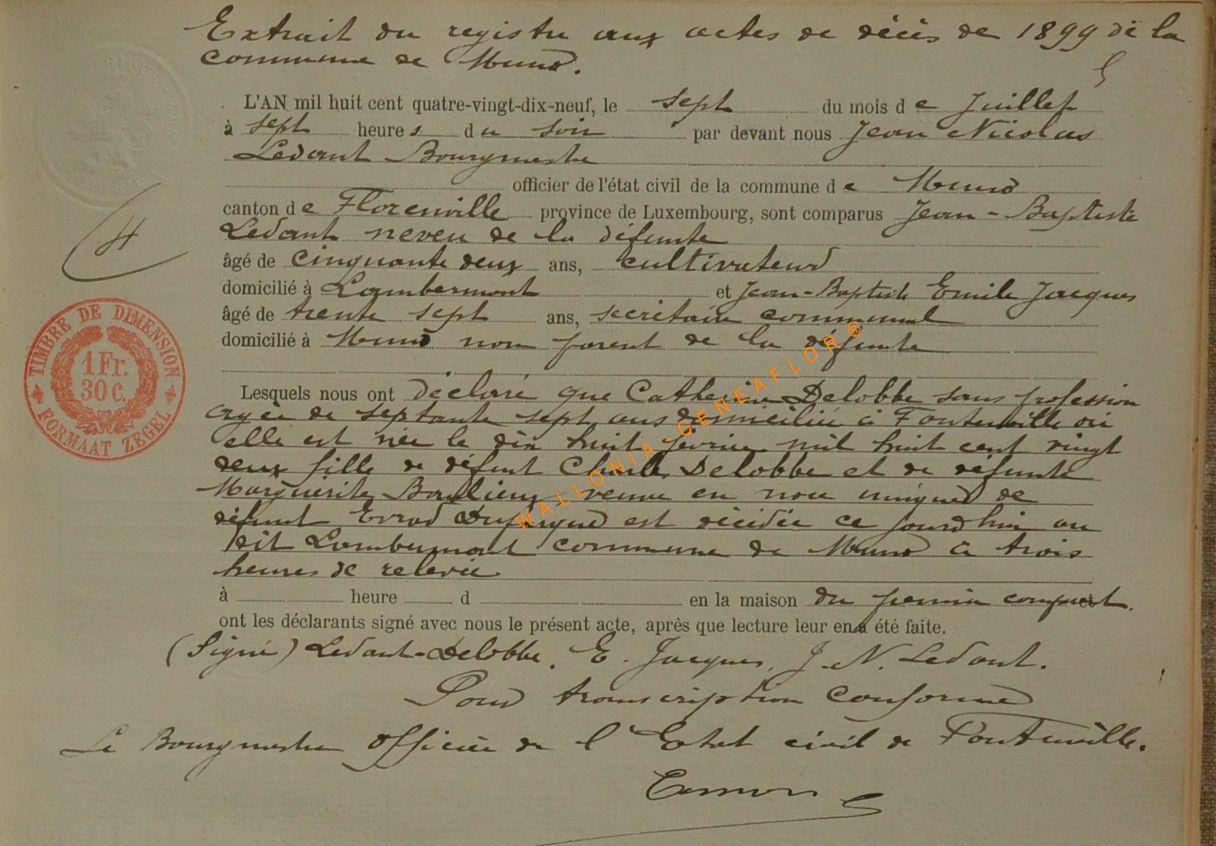 Extrait du registre aux actes de décès de 1899 de la
commune de Muno.
L'AN mil huit cent quatre-vingt-dix-neuf, le sept du mois de Juillet
à sept heures du soir par devant nous Jean Nicolas
Ledant Bourgmestre
officier de l'état civil de la commune de Muno
canton de Florenville province de Luxembourg, sont comparus Jean-Baptiste
Ledant neveu de la défunte
âgé de cinquante deux ans, cultivateur
domicilié à Lambermont et Jean-Baptiste Emile Jacques
âgé de trente sept ans, secrétaire communal
domicilié à Muno non parent de la défunte
Lesquels nous ont déclaré que Catherine Delobbe sans profession
agée de septante sept ans domiciliée à Fontenoille où
elle est née le dix huit février mil huit cent vingt
deux fille de défunt Charles Delobbe et de défunte
Marguerite veuve en non de
défunt est décédée ce jourd'hui au
dit Lambermont commune de Muno à trois
heures de relevée
à heure d en la maison du premier comparant.
ont les déclarants signé avec nous le présent acte, après que lecture leur en a été faite.
(Signé) Ledant-Delobbe, E. Jacques, J. N. Ledant.
Pour transcription conforme
Le Bourgmestre officier de l'Etat civil de Fontenoille.
4
TIMBRE DE DIMENSION
1 Fr.
30 C.
FORMAAT ZEGEL
WALLONIA-GENEAFLOR®